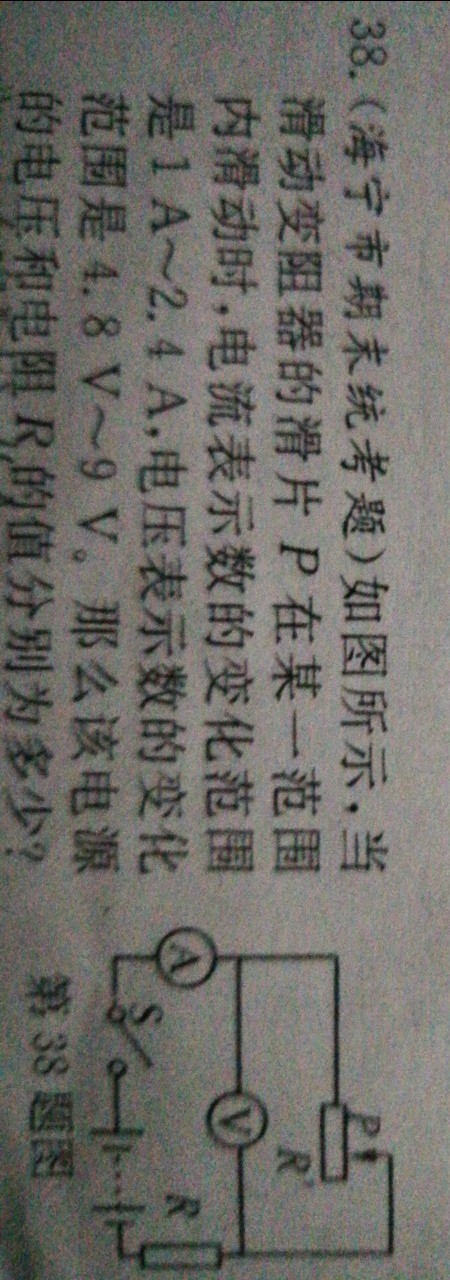 38.(海宁市期末统考题)如图所示,当
滑动变阻器的滑片 P 在某一范围
内滑动时,电流表示数的变化范围
是 1 A~2.4 A,电压表示数的变化
范围是 4.8 V~9 V。那么该电源
的电压和电阻 R 的值分别为多少?
P
R'
V
A
S
R
第 38 题图